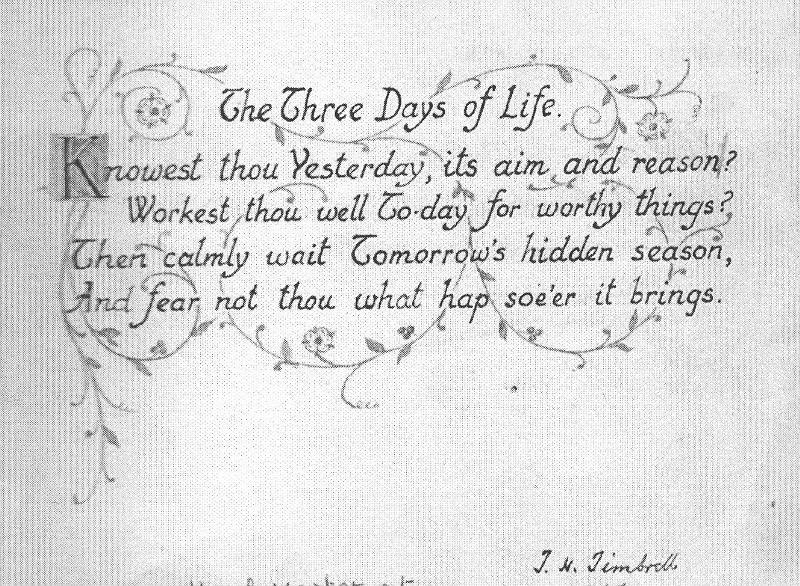 The Three Days of Life.
Knowest thou Yesterday, its aim and reason?
Workest thou well To-day for worthy things?
Then calmly wait Tomorrow's hidden season,
And fear not thou what hap soe'er it brings.